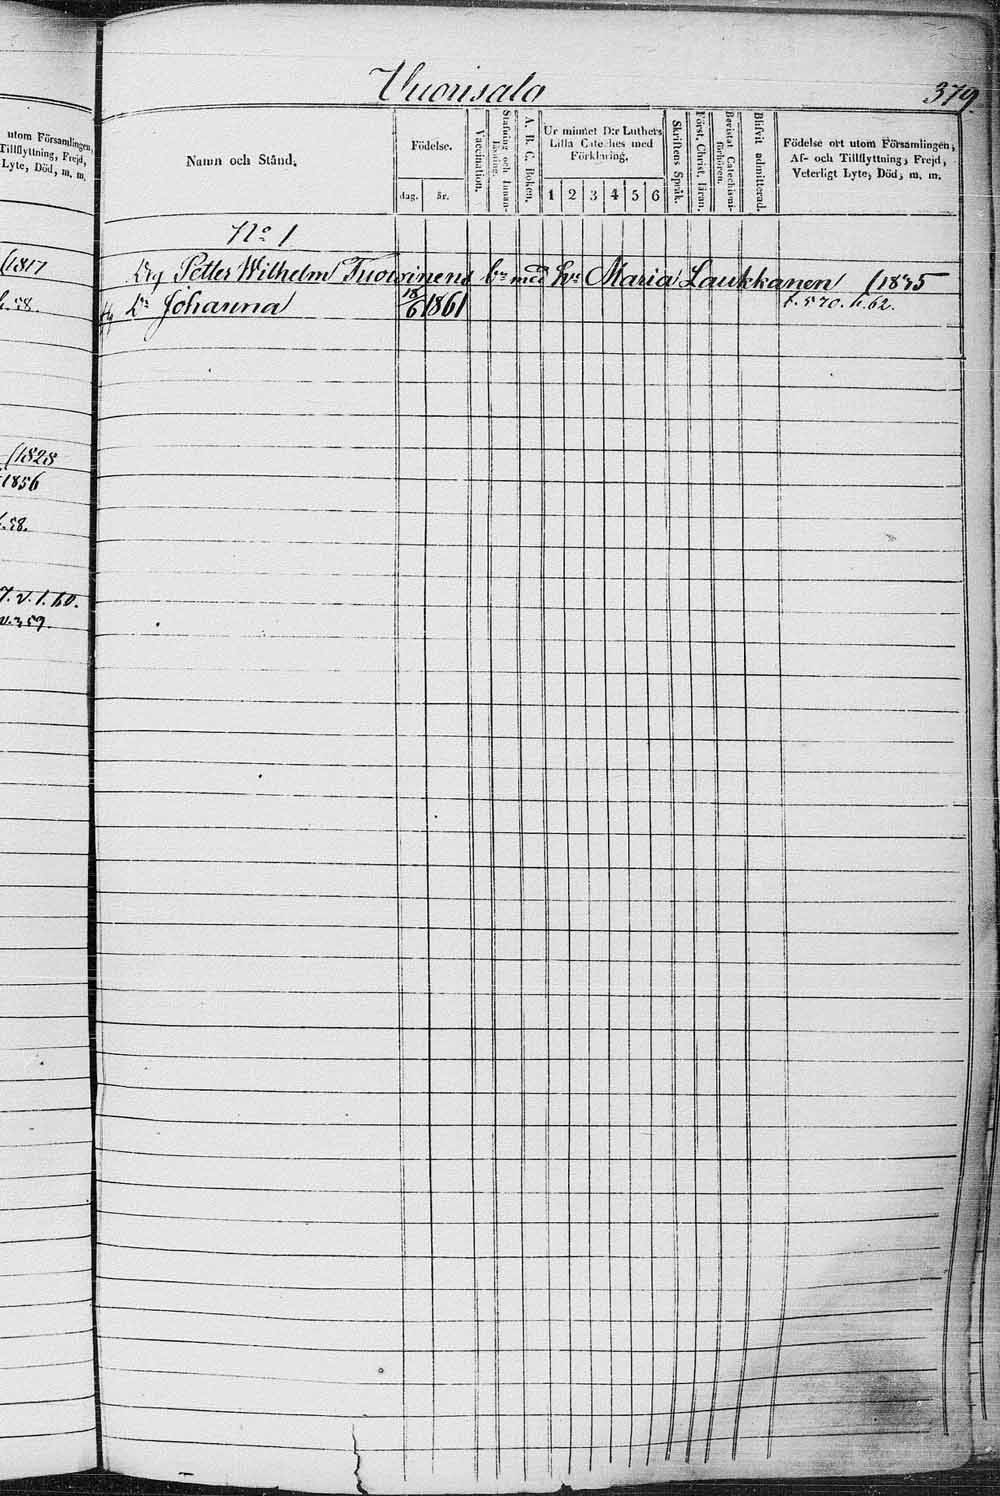 utom Församlingen,
Tillflyttning, Frejd,
Lyte, Död, m. m.
(1817
h. 58.
(1828
1856
h. 58.
7. v. 1. 60.
v. 359.
Vuorisalo
379
Namn och Stånd.
Födelse.
dag. år.
Vaccination.
Stafning och Innan-
läsning.
A. B. C. Boken.
Ur minnet D:r Luthers
Lilla Cateches med
Förklaring.
1 2 3 4 5 6
Skriftens Språk.
Först. Christ. läran.
Bevistat Catechismi-
förhören.
Blifvit admitterad.
Födelse ort utom Församlingen,
Af- och Tillflyttning, Frejd,
Veterligt Lyte, Död, m. m.
No 1
Petter Wilhelm Tuovinens med Maria Laukkanen (1835
Johanna 18/6 1861 f. 570. h. 62.